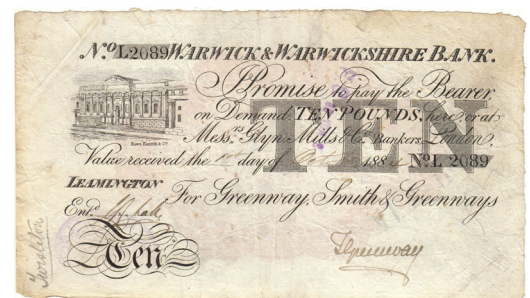 No L2089 WARWICK & WARWICKSHIRE BANK.
I Promise to pay the Bearer
on Demand TEN POUNDS, here or at
Messrs Glyn Mills & Co Bankers, London.
Value received the day of Oct 188
No L 2089
TEN
LEAMINGTON
For Greenway, Smith & Greenways
Entd
Ten
Greenway